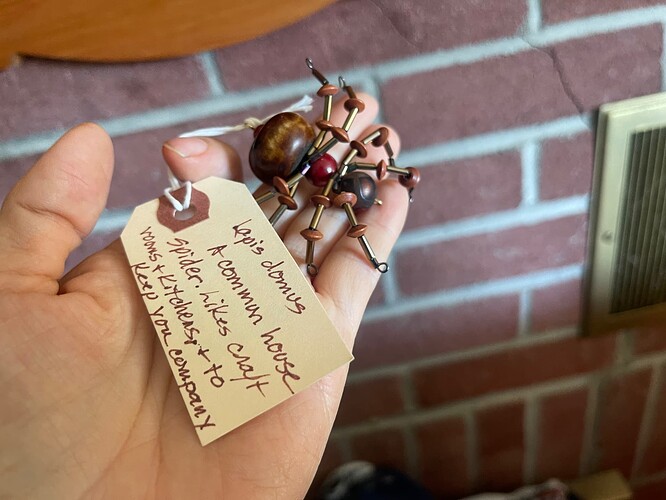 Lapis domus
A common house
spider. Likes craft
rooms + kitchens, + to
keep you company